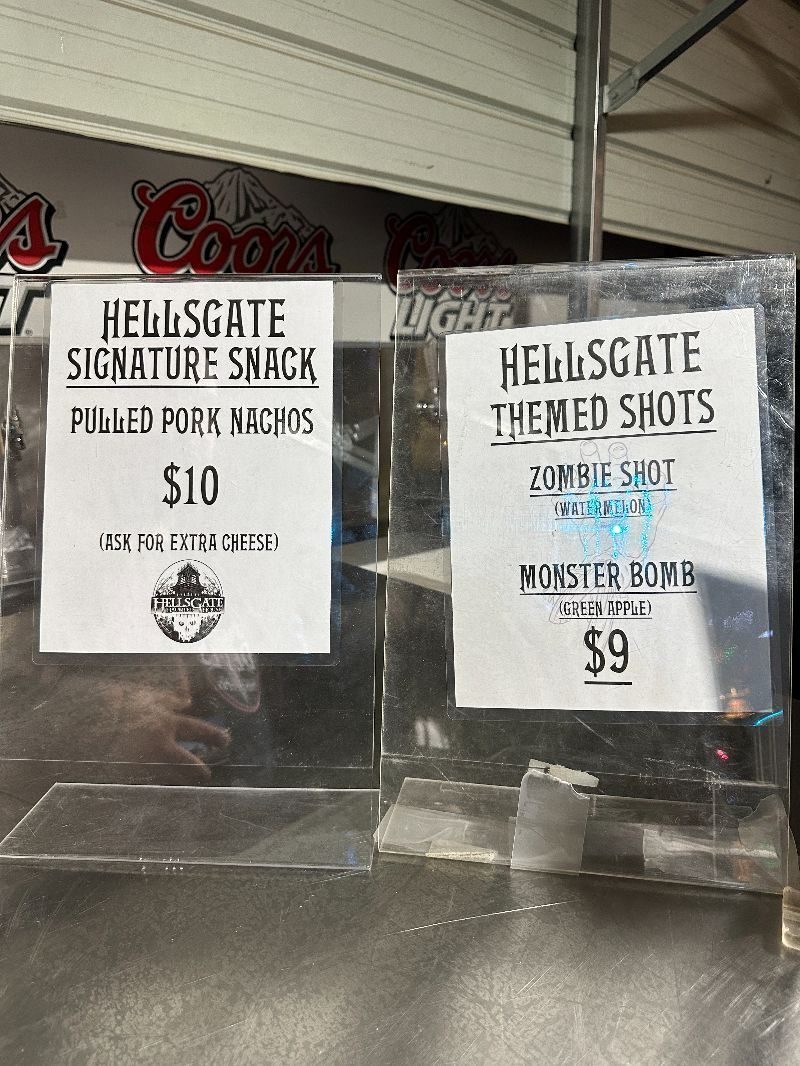 Coors
Coors
LIGHT
HELLSGATE
SIGNATURE SNACK
PULLED PORK NACHOS
$10
(ASK FOR EXTRA CHEESE)
HELLSGATE
HELLSGATE
THEMED SHOTS
ZOMBIE SHOT
(WATERMELON)
MONSTER BOMB
(GREEN APPLE)
$9